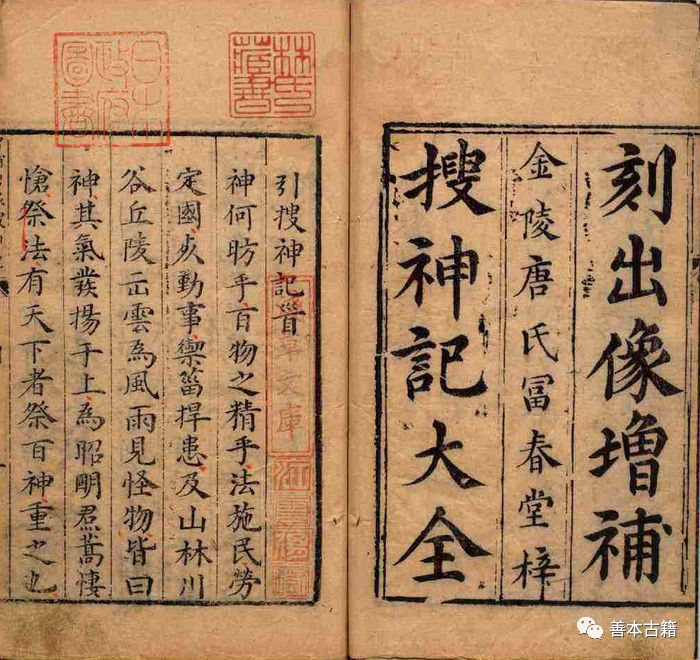 刻出像增補
金陵唐氏冨春堂梓
搜神記大全
林氏藏書
日本政府圖書
引搜神記首
神何昉乎百物之精乎法施民勞
定國死勤事禦菑捍患及山林川
谷丘陵出雲為風雨見怪物皆曰
神其氣發揚于上為昭明焄蒿悽
愴祭法有天下者祭百神重之也
淺草文庫
江雲渭樹
善本古籍